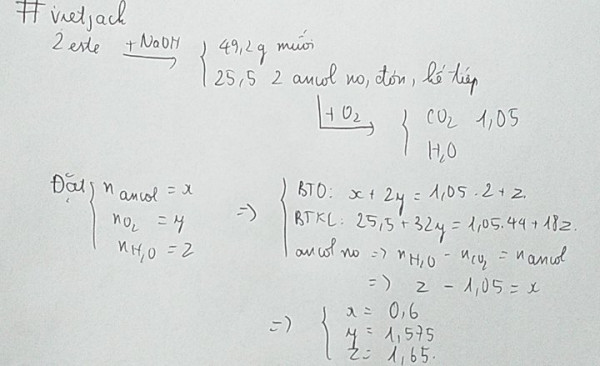 # vietjack
2 este +NaOH → { 49,2g muối
25,5 2 ancol no, đơn, kế tiếp
+O₂ → { CO₂ 1,05
H₂O
Đặt { n ancol = x
nO₂ = y
nH₂O = z
=> { BTO: x + 2y = 1,05 . 2 + z.
BTKL: 25,5 + 32y = 1,05.44 + 18z.
ancol no => nH₂O - nCO₂ = n ancol
=> z - 1,05 = x
=> { x = 0,6
y = 1,575
z = 1,65.